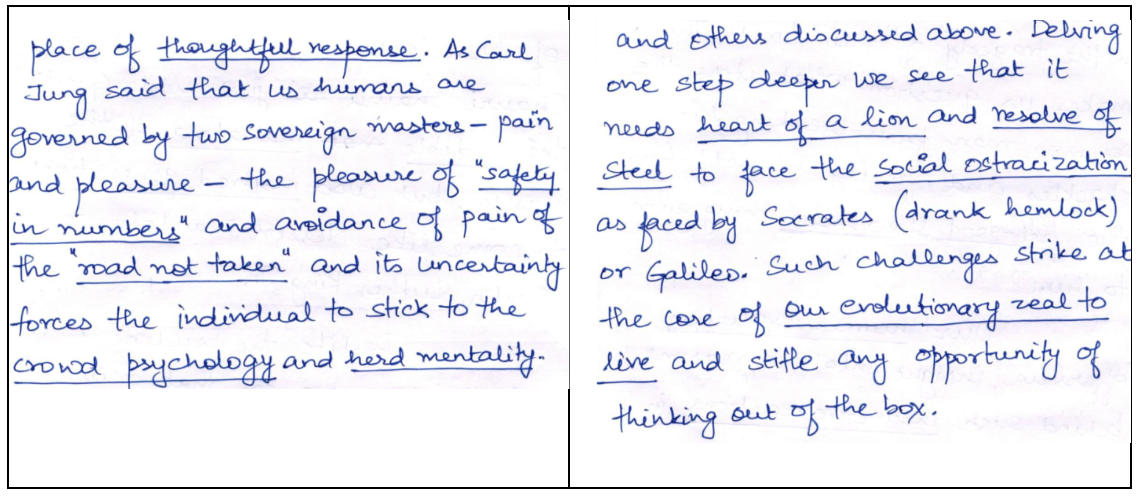 place of thoughtfull response. As Carl
Jung said that us humans are
governed by two sovereign masters – pain
and pleasure – the pleasure of "safety
in numbers" and avoidance of pain of
the "road not taken" and its uncertainty
forces the individual to stick to the
crowd psychology and herd mentality.
and others discussed above. Delving
one step deeper we see that it
needs heart of a lion and resolve of
steel to face the social ostracization
as faced by Socrates (drank hemlock)
or Galileo. Such challenges strike at
the core of our evolutionary zeal to
live and stifle any opportunity of
thinking out of the box.